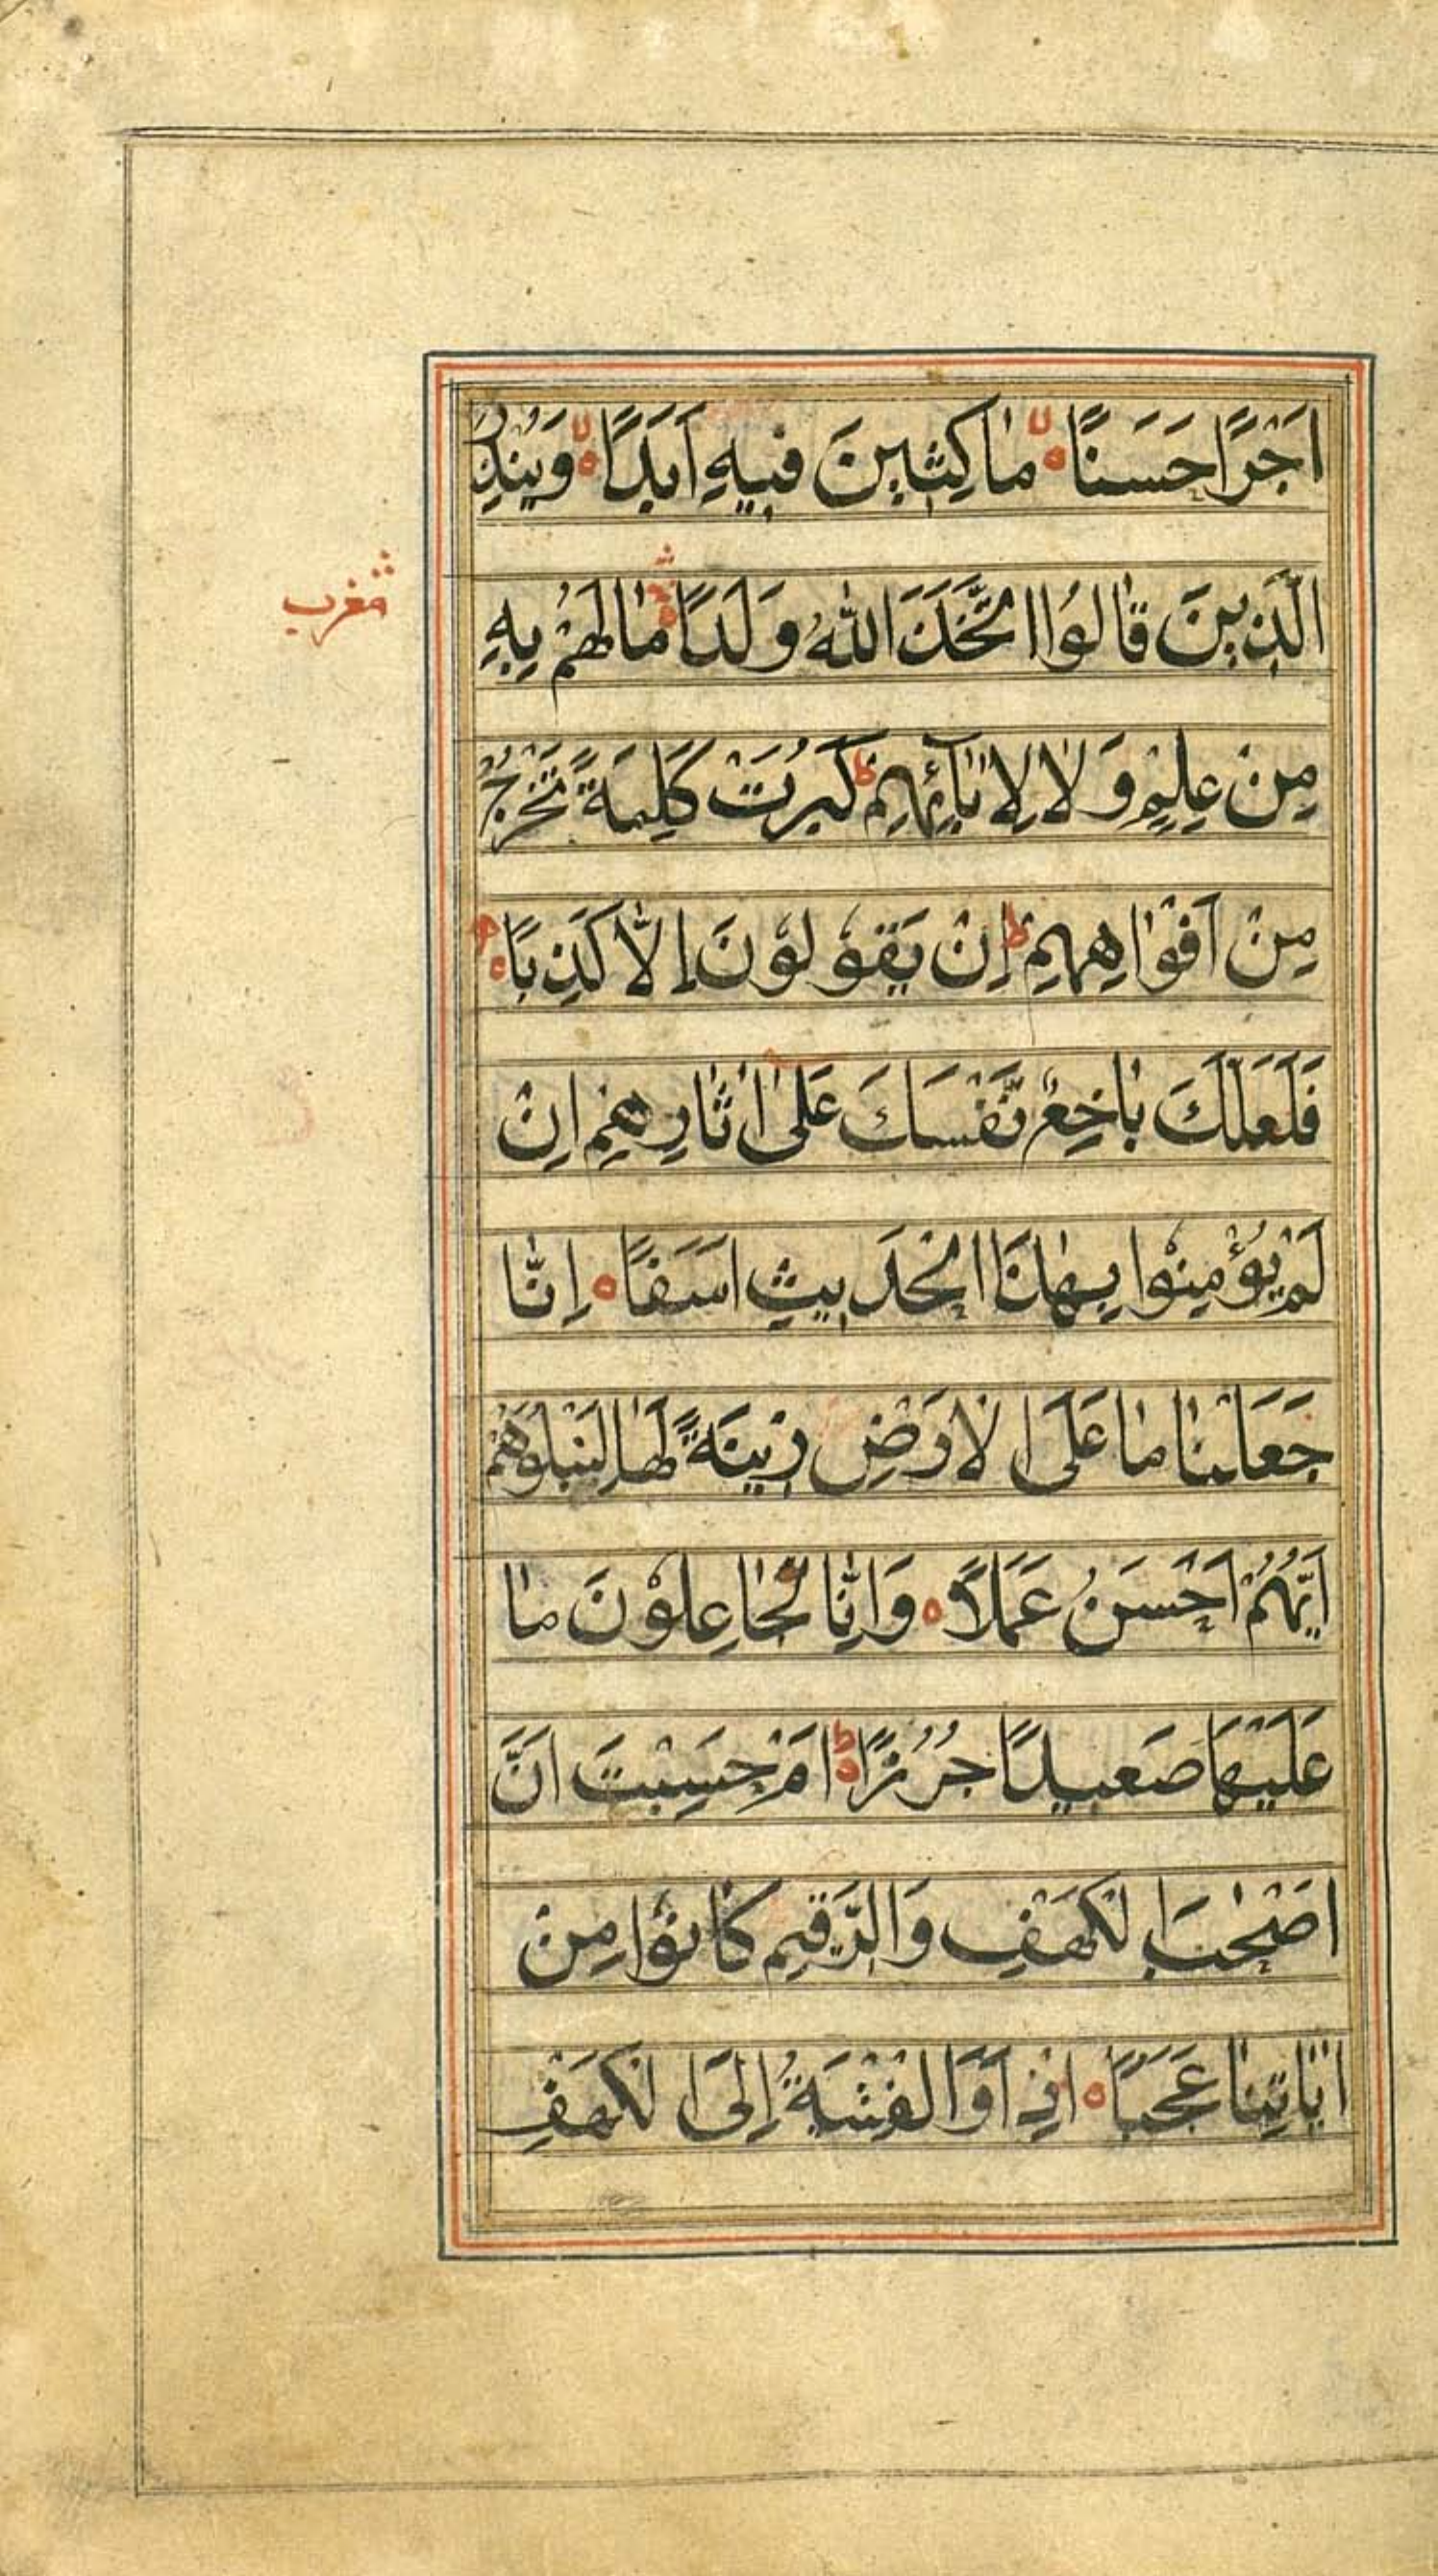 اَجْرًا حَسَنًا ۙ مٰاكِثٖينَ فٖيهِ اَبَدًا ۙ وَيُنْذِرَ
مغرب
الَّذٖينَ قٰالُوا اتَّخَذَ اللّٰهُ وَلَدًا ۗ مٰا لَهُمْ بِهٖ
مِنْ عِلْمٍ وَلٰا لِاٰبٰٓائِهِمْ ط كَبُرَتْ كَلِمَةً تَخْرُجُ
مِنْ اَفْوٰاهِهِمْ ط اِنْ يَقُوْلُوْنَ اِلّٰا كَذِبًا
فَلَعَلَّكَ بٰاخِعٌ نَّفْسَكَ عَلٰى اٰثٰارِهِمْ اِنْ
لَمْ يُؤْمِنُوْا بِهٰذَا الْحَدٖيثِ اَسَفًا ۝ اِنّٰا
جَعَلْنٰا مٰا عَلَى الْاَرْضِ زٖينَةً لَهٰا لِنَبْلُوَهُمْ
اَيُّهُمْ اَحْسَنُ عَمَلًا ۝ وَاِنّٰا لَجٰاعِلُوْنَ مٰا
عَلَيْهَا صَعٖيدًا جُرُزًا ط اَمْ حَسِبْتَ اَنَّ
اَصْحٰبَ الْكَهْفِ وَالرَّقٖيمِ كٰانُوْا مِنْ
اٰيٰاتِنٰا عَجَبًا ۝ اِذْ اَوَى الْفِتْيَةُ اِلَى الْكَهْفِ